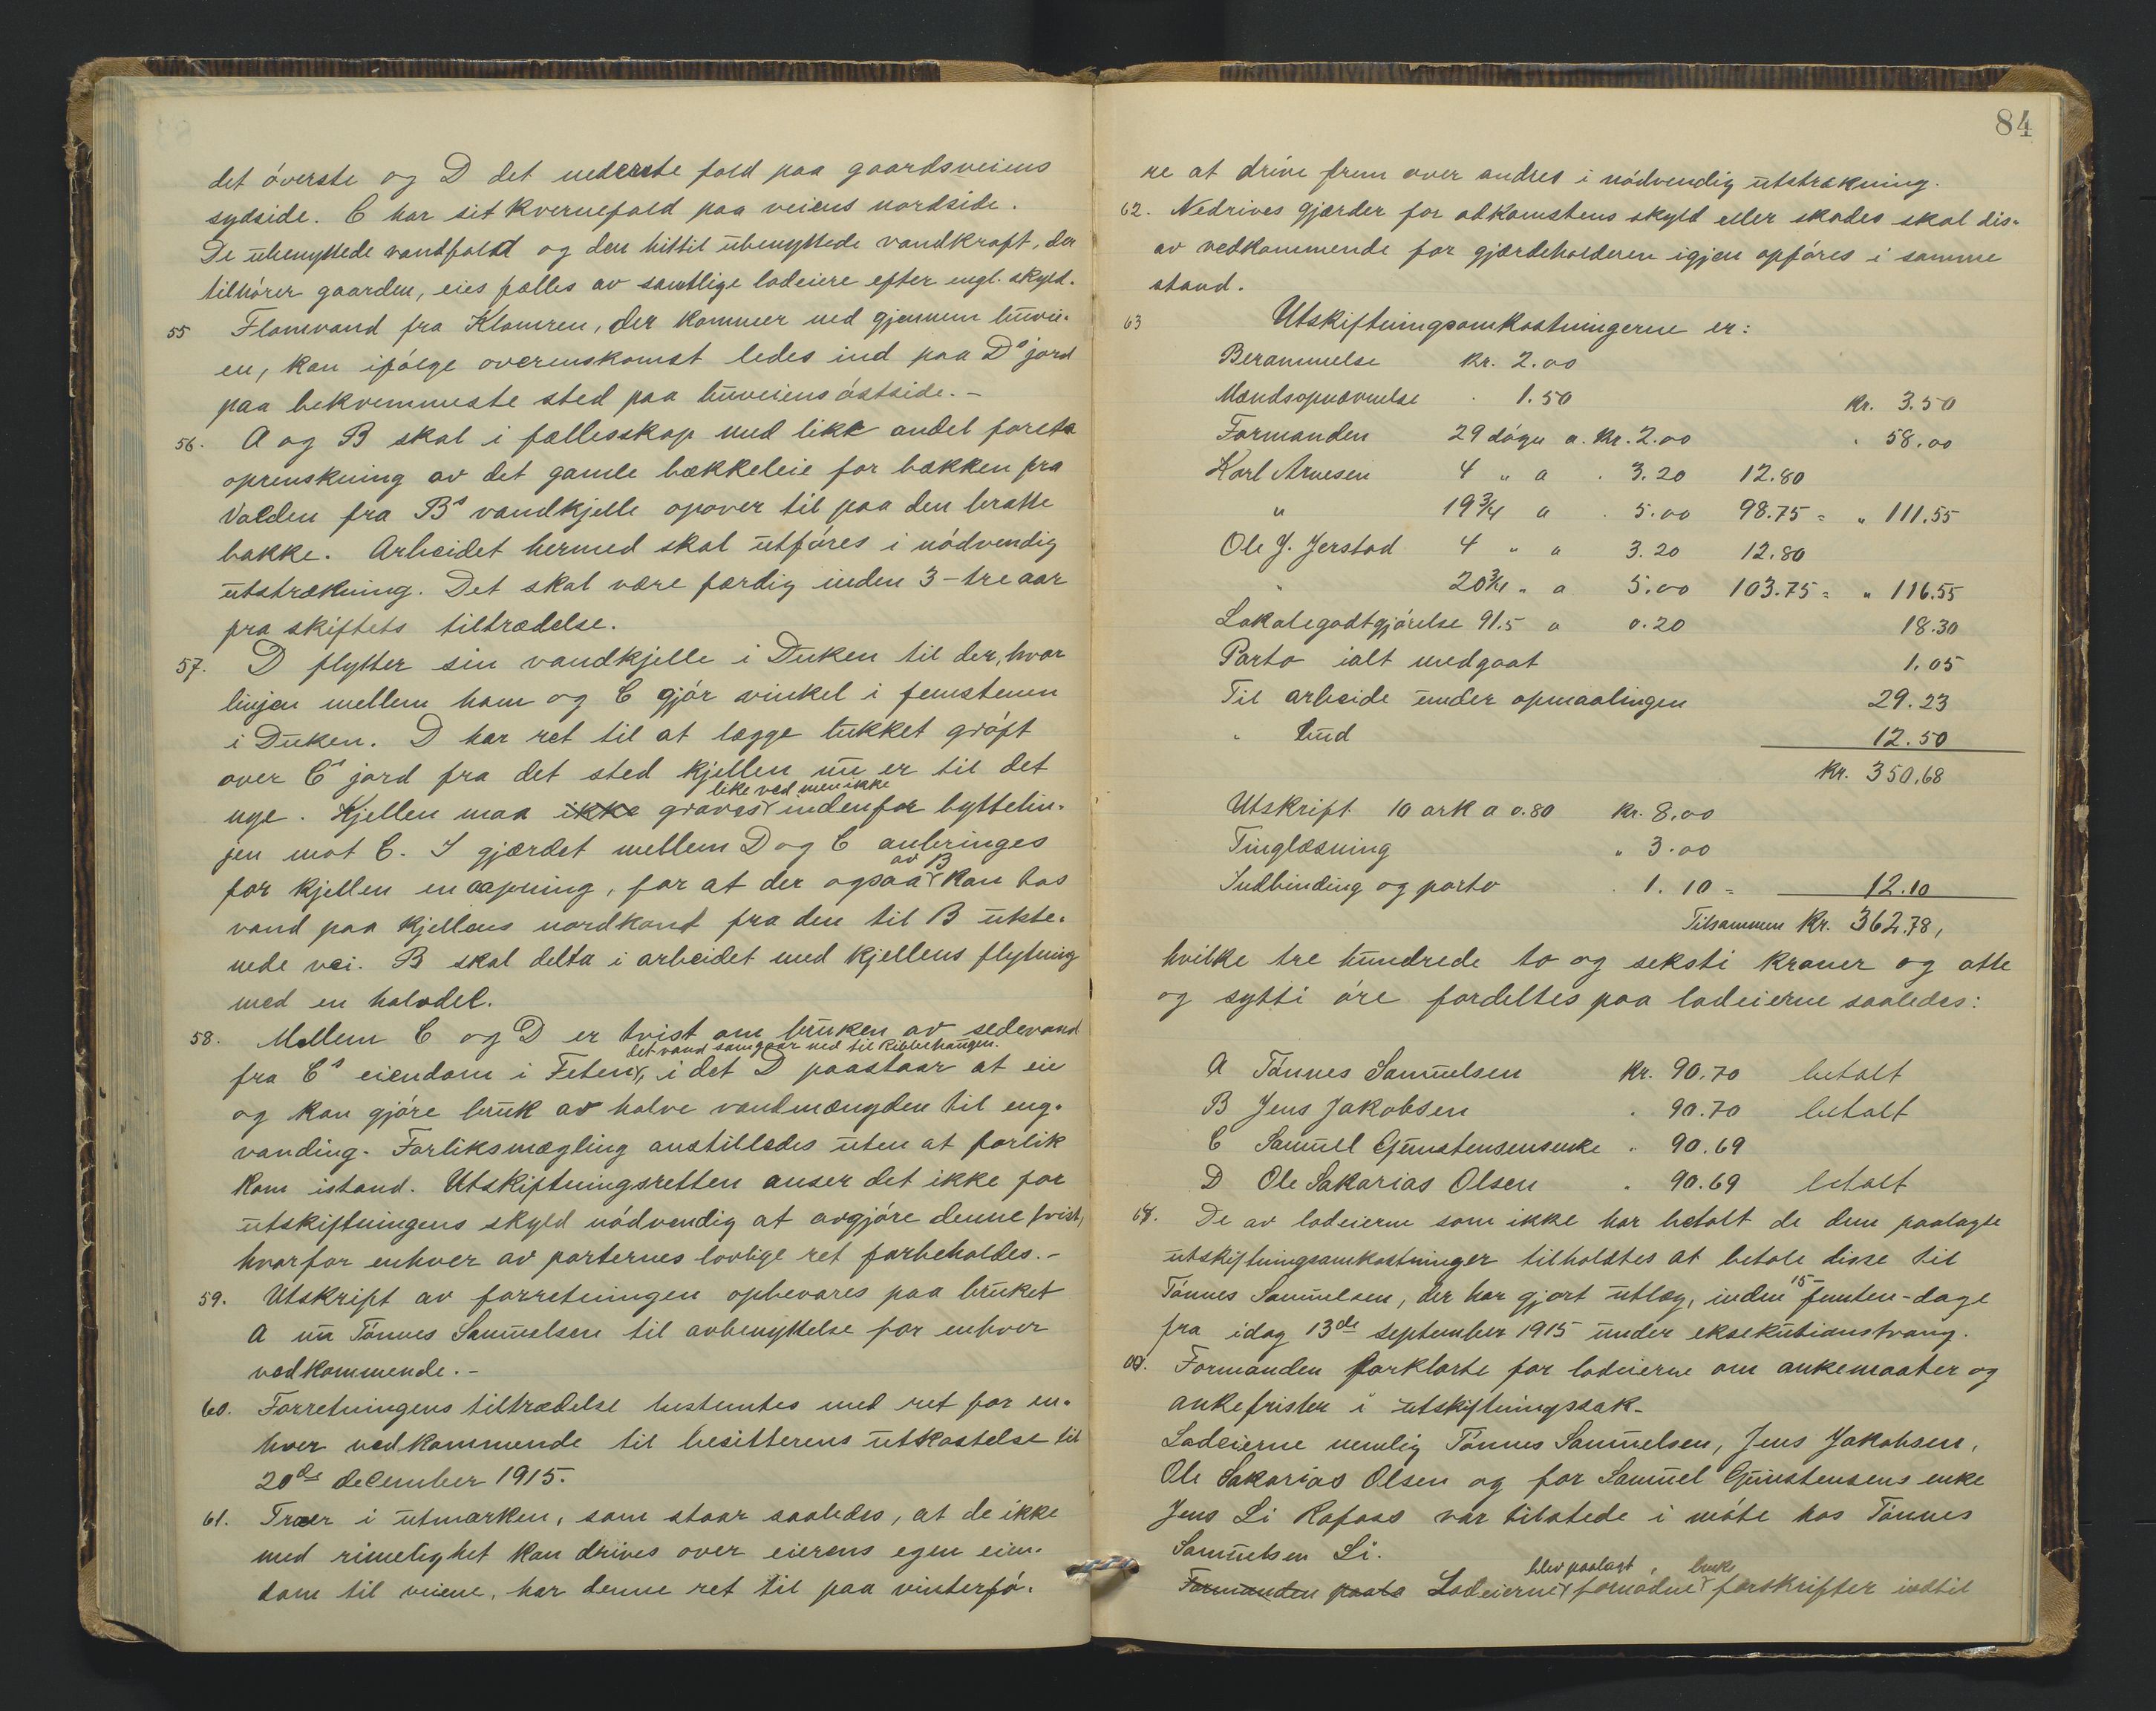 det överste og D det nederste fald paa gaardsveiens
sydside. C har sit kvernefald paa veiens nordside.
De ubenyttede vandfald og den hittil ubenyttede vandkraft, der
tilhörer gaarden, eies fælles av samtlige lodeiere efter engl. skyld.
55 Flomvand fra Klomren, der kommer ned gjennem buvei-
en, kan ifölge overenskomst ledes ind paa Ds jord
paa bekvemmeste sted paa buveiens östside.-
56. A og B skal i fællesskap med likk andel foreta
oprenskning av det gamle bækkeleie for bækken fra
Valden fra Bs vandkjelle opover til paa den bratte
bakke. Arbeidet hermed skal utföres i nödvendig
utstrækning. Det skal være færdig inden 3 - tre aar
fra skiftets tiltrædelse.
57. D flytter sin vandkjelle i Duken til der, hvor
linjen mellem ham og C gjör vinkel i femstenen
i Duken. D har ret til at lægge lukket gröft
over Cs jord fra det sted kjellen nu er til det
like ved men ikke
nye. Kjellen maa ikke graves indenfor byttelin-
jen mot C. I gjærdet mellem D og C anbringes
av B
for kjellen en aapning, for at der ogsaa kan tas
vand paa kjellens nordkant fra den til B utste-
nede vei. B skal delta i arbeidet med kjellens flytning
med en halvdel.
58. Mellem C og D er tvist om bruken av sedevand
det vand som gaar ned til Kibbehaugen.
fra Cs eiendom i Feten, i det D paastaar at eie
og kan gjöre bruk av halve vandmængden til eng-
vanding. Forliksmægling anstilledes uten at forlik
kom istand. Utskiftningsretten anser det ikke for
utskiftningens skyld nödvendig at avgjöre denne tvist,
hvorfor enhver av parternes lovlige ret forbeholdes.-
59. Utskrift av forretningen opbevares paa bruket
A nu Tönnes Samuelsen til avbenyttelse for enhver
vedkommende.-
60. Forretningens tiltrædelse bestemtes med ret for en-
hver vedkommende til besitterens utkastelse til
20de december 1915.
61. Træer i utmarken, som staar saaledes, at de ikke
med rimelighet kan drives over eierens egen eien-
dom til veiene, har denne ret til paa vinterfö-
84
re at drive frem over andres i nödvendig utstrækning.
62. Nedrives gjærder for atkomstens skyld eller skades skal dis-
av vedkommende for gjærdeholderen igjen opföres i samme
stand.
63 Utskiftningsomkostningerne er:
Berammelse kr. 2.00
Mændsopnævnelse " 1.50 kr. 3.50
Formanden 29 dögn a. kr. 2.00 " 58.00
Karl Arnesen 4 " a " 3.20 12.80
" 19 3/4 a " 5.00 98.75 = " 111.55
Ole J. Jerstad 4 " a 3.20 12.80
" 20 3/4 " a 5.00 103.75 = " 116.55
Lokalegodtgjörelse 91.5 a 0.20 18.30
Porto ialt medgaat 1.05
Til arbeide under opmaalingen 29.23
" bud 12.50
Kr. 350.68
Utskrift 10 ark a 0.80 kr. 8.00
Tinglæsning " 3.00
Indbinding og porto " 1.10 = 12.10
Tilsammen Kr. 362.78,
hvilke tre hundrede to og seksti kroner og otte
og sytti öre fordeltes paa lodeierne saaledes:
A Tönnes Samuelsen kr. 90.70 betalt
B Jens Jakobsen " 90.70 betalt
C Samuel Gunstensens enke " 90.69
D Ole Sakarias Olsen " 90.69 betalt
64. De av lodeierne som ikke har betalt de dem paalagte
utskiftningsomkostninger tilholdtes at betale disse til
Tönnes Samuelsen, der har gjort utlæg, inden 15 - femten - dage
fra idag 13de september 1915 under eksekutionstvang.
Formanden forklarte for lodeierne om ankemaater og
ankefrister i utskiftningssak.
Lodeierne nemlig Tönnes Samuelsen, Jens Jakobsen,
Ole Sakarias Olsen og for Samuel Gunstensens enke
Jens Li Rafoss var tilstede i möte hos Tönnes
Samuelsen Li.
blev paalagt, bruks
Formanden paala Lodeierne fornödne forskrifter indtil